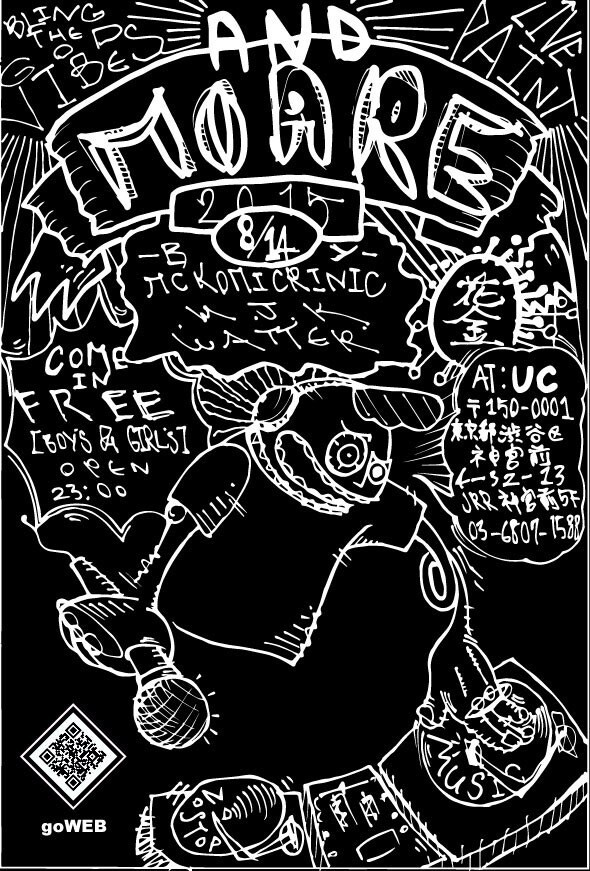 BLING
THE DS
&
GIBES
LIVE
PAINT
AND
MOARE
2015
8/14
-B Y-
MC KOMICRINIC
M.J.K
WATTER
花
金
COME
IN
FREE
[BOYS & GIRLS]
OPEN
23:00
AT: UC
〒150-0001
東京都渋谷区
神宮前
6-32-13
JRR神宮前5F
03-6807-1588
MUSIC
NO STOP
goWEB